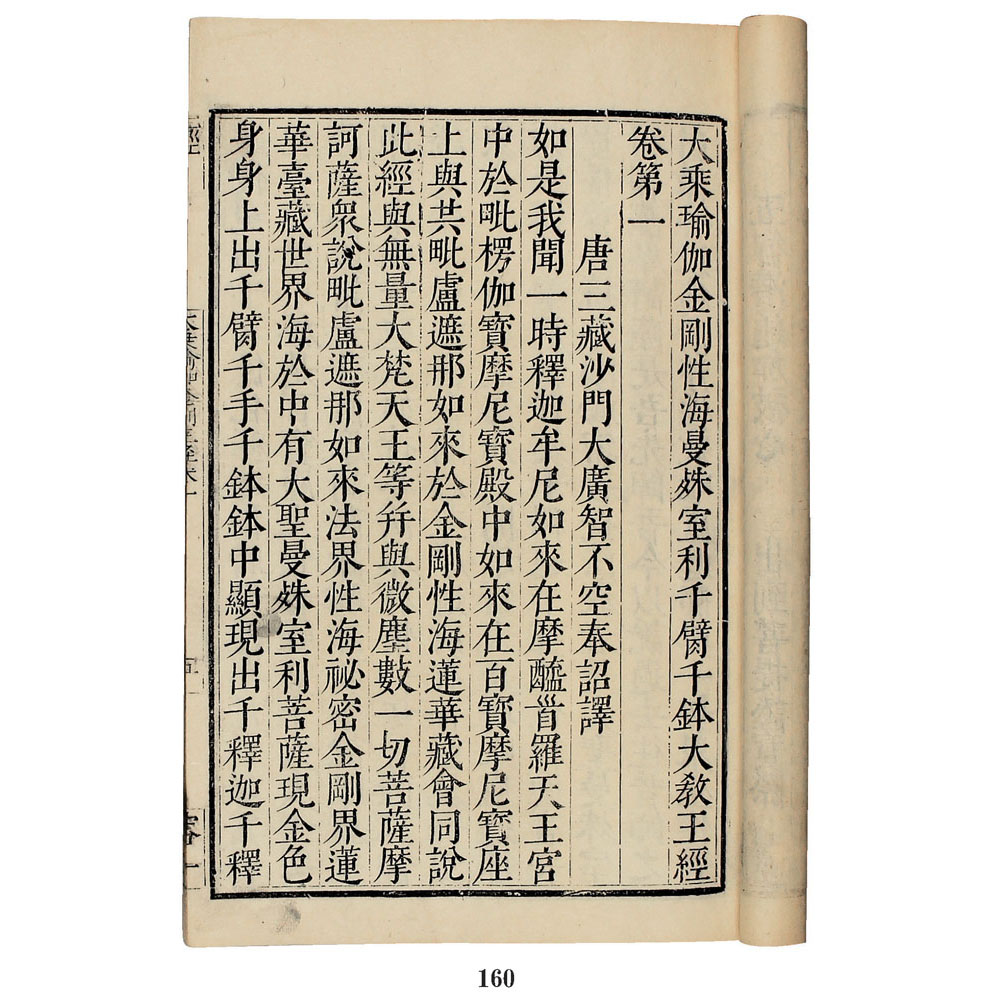 大乘瑜伽金剛性海曼殊室利千臂千鉢大教王經
卷第一
唐三藏沙門大廣智不空奉詔譯
如是我聞一時釋迦牟尼如來在摩醯首羅天王宮
中於毗楞伽寶摩尼寶殿中如來在百寶摩尼寶座
上與共毗盧遮那如來於金剛性海蓮華藏會同說
此經與無量大梵天王等幷與微塵數一切菩薩摩
訶薩衆說毗盧遮那如來法界性海祕密金剛界蓮
華臺藏世界海於中有大聖曼殊室利菩薩現金色
身身上出千臂千手千鉢鉢中顯現出千釋迦千釋
160